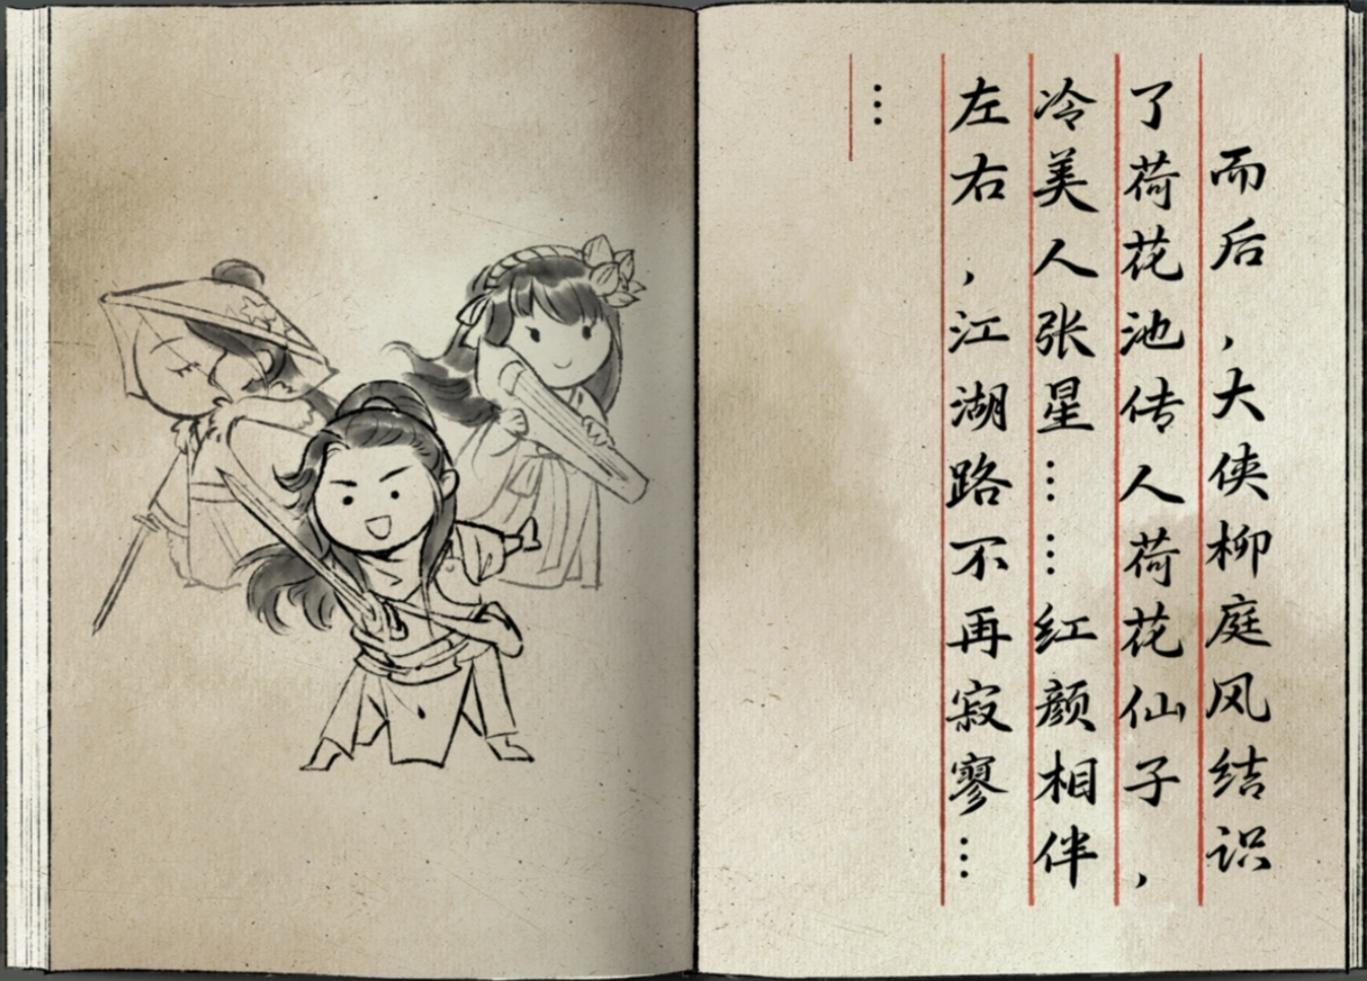 而后，大侠柳庭风结识
了荷花池传人荷花仙子，
冷美人张星……红颜相伴
左右，江湖路不再寂寥…
…